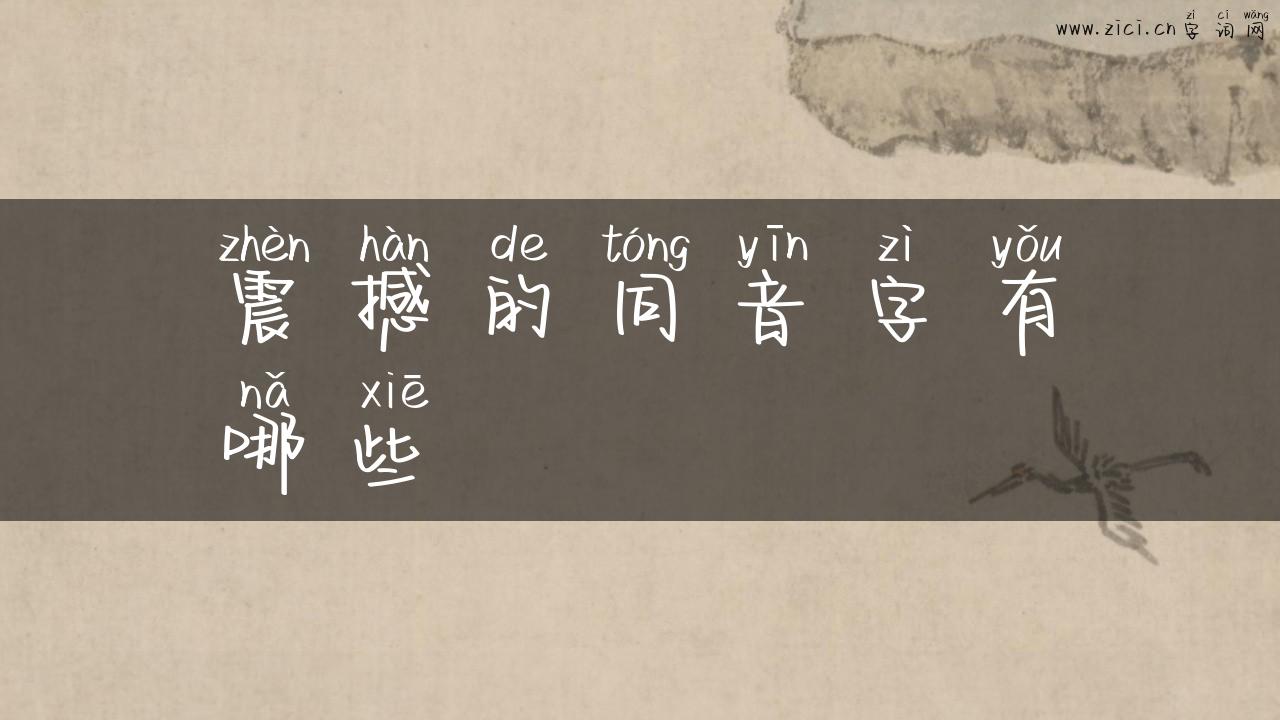 zì cí wǎng
www.zici.cn 字词网
zhèn hàn de tóng yīn zì yǒu
震撼的同音字有
nǎ xiē
哪些